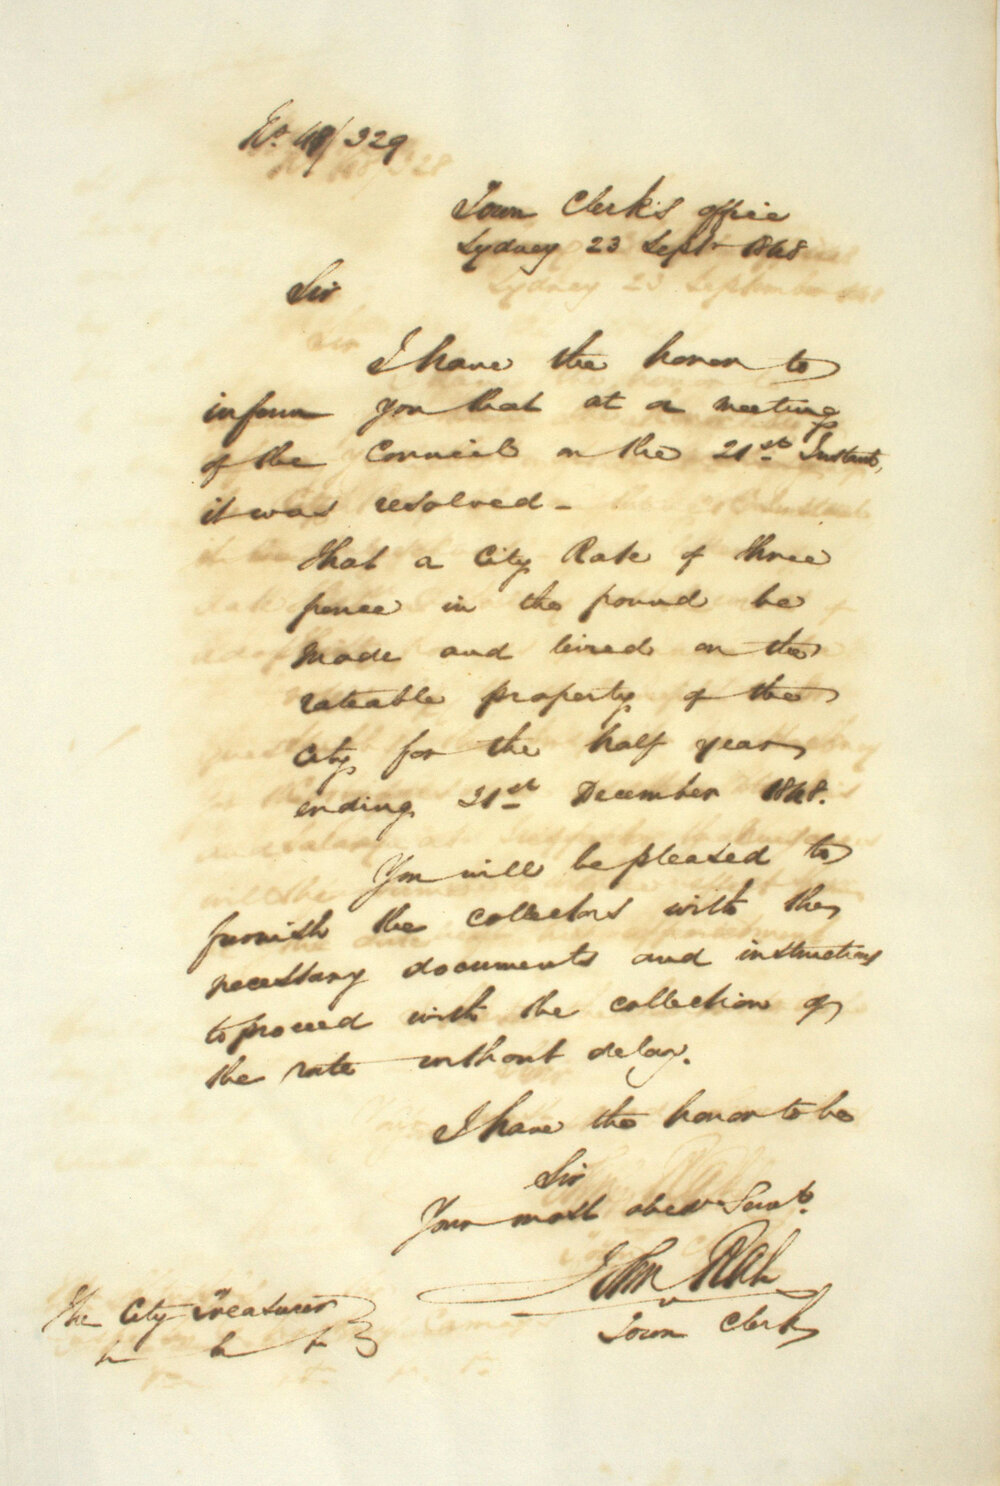 No. 48/329
Town Clerk's office
Sydney 23 Sept. 1848
Sir
I have the honor to
inform you that at a meeting
of the Council on the 21st Instant,
it was resolved -
that a City Rate of three
pence in the pound be
made and levied on the
rateable property of the
City for the half year
ending 31st December 1848.
You will be pleased to
furnish the collectors with the
necessary documents and instructions
to proceed with the collection of
the rate without delay.
I have the honor to be
Sir
Your most obedt Servt.
John
Town Clerk
The City Treasurer